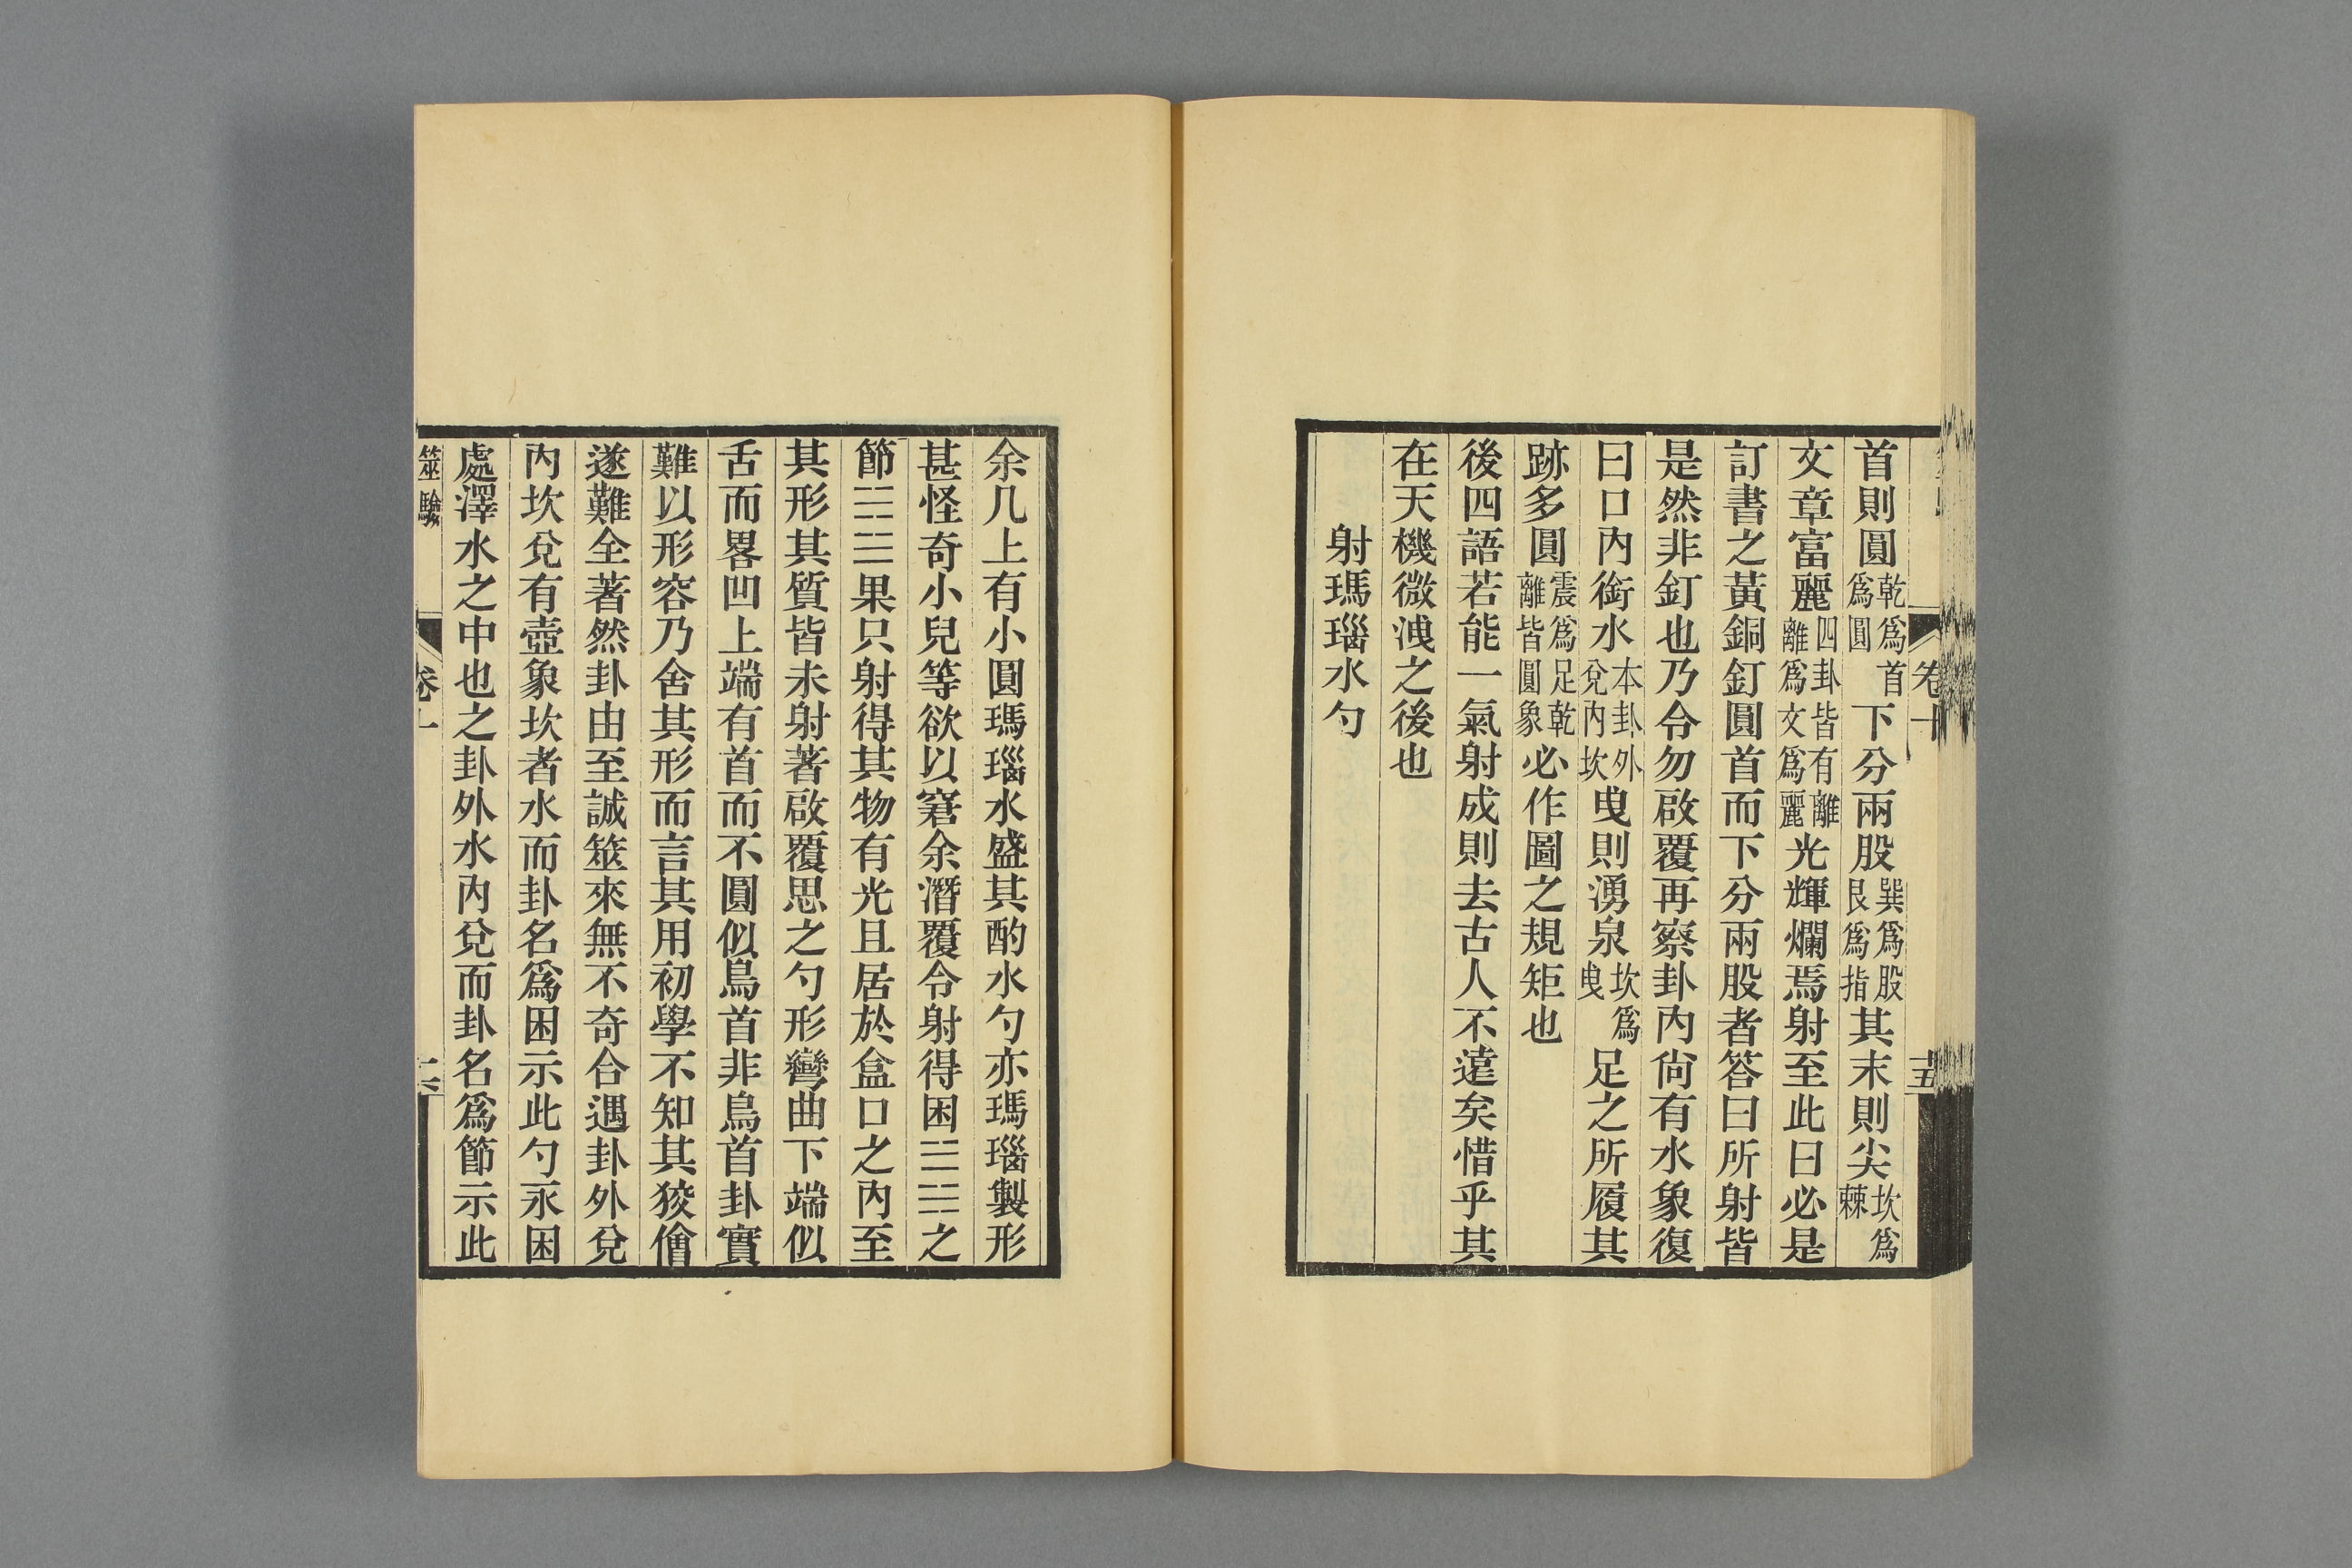 首則圓乾爲首爲圓下分兩股巽爲股艮爲指其末則尖坎爲棘
文章富麗四卦皆有離離爲文爲麗光輝爛焉射至此曰必是
訂書之黃銅釘圓首而下分兩股者答曰所射皆
是然非釘也乃令勿啟覆再察卦內尙有水象復
曰口內銜水本卦外兌內坎曳則湧泉坎爲曳足之所履其
跡多圓震爲足乾離皆圓象必作圖之規矩也
後四語若能一氣射成則去古人不遠矣惜乎其
在天機微洩之後也
射瑪瑙水勺
余几上有小圓瑪瑙水盛其酌水勺亦瑪瑙製形
甚怪奇小兒等欲以窘余潛覆令射得困☱☵之
節☵☱果只射得其物有光且居於盒口之內至
其形其質皆未射著啟覆思之勺形彎曲下端似
舌而畧凹上端有首而不圓似鳥首非鳥首卦實
難以形容乃舍其形而言其用初學不知其狡儈
遂難全著然卦由至誠筮來無不奇合遇卦外兌
內坎兌有壺象坎者水而卦名爲困示此勺永困
處澤水之中也之卦外水內兌而卦名爲節示此
筮驗
卷十